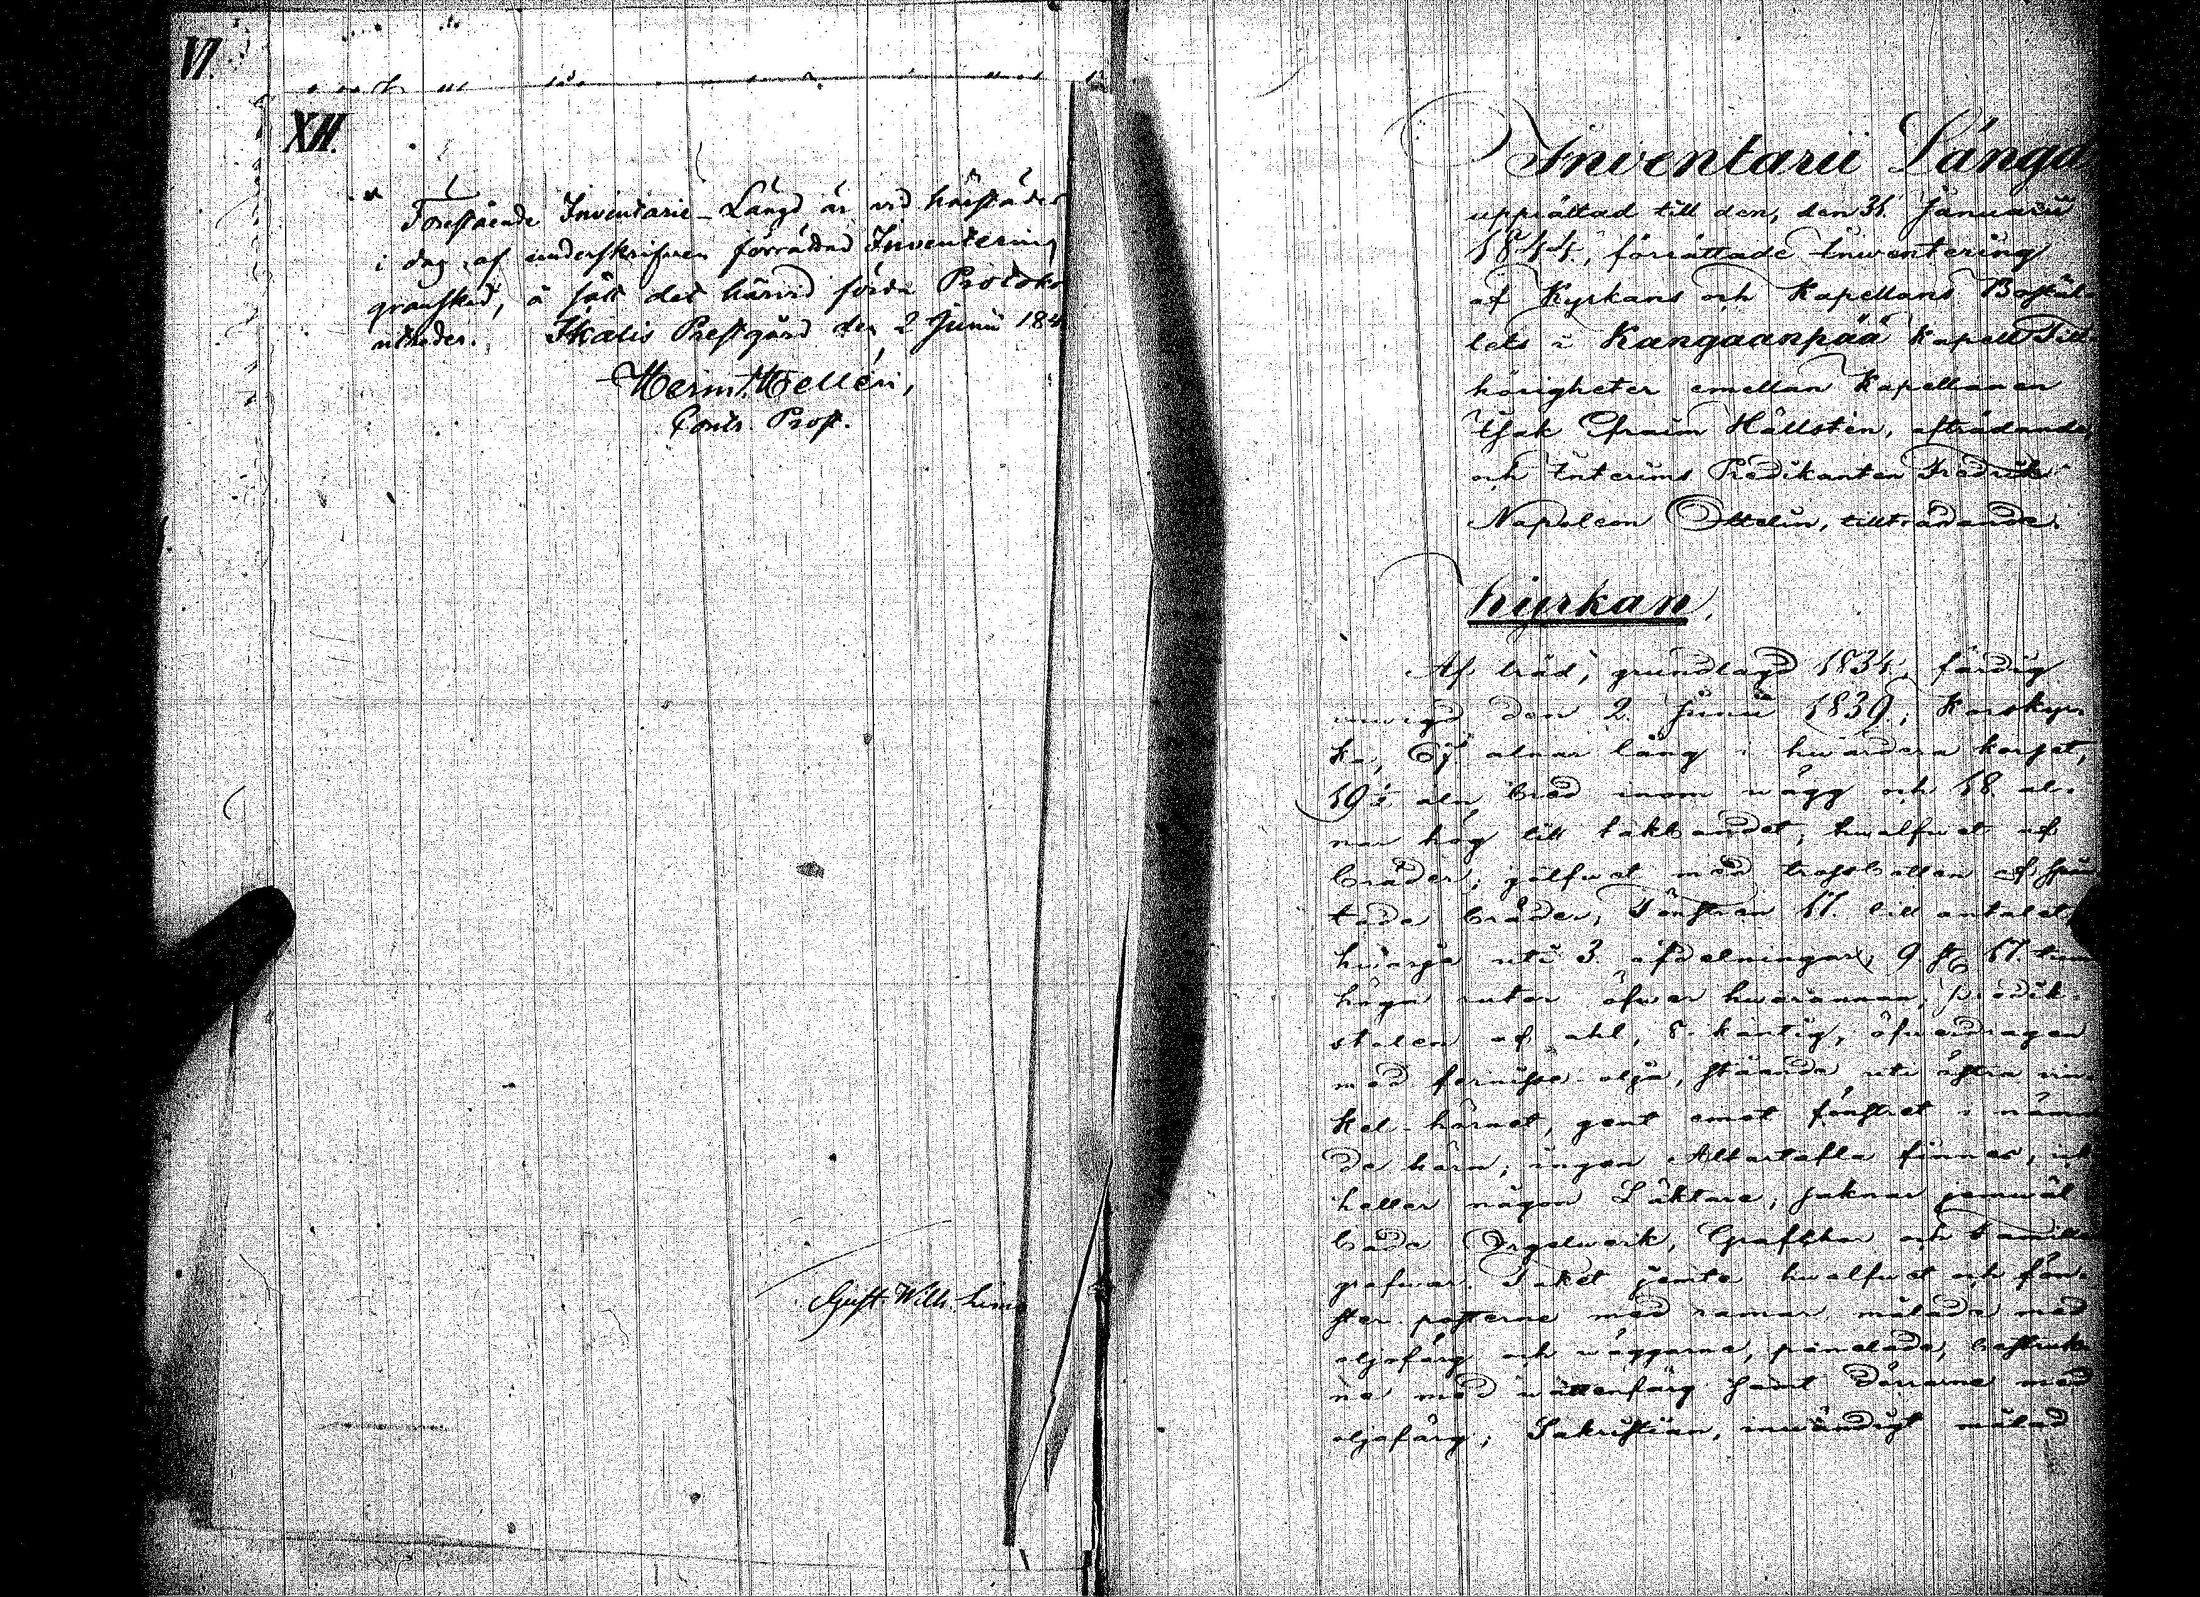 VI.
XII.
Föreståënde Inventarie-Längd är vid härstädes
i dag af underskrifven förrättad Inventering
granskad, å sätt det härvid förda Protokoll
utvisder. Ikalis Prestgård den 2 Junii 184
Herm. Hellén,
Contr. Prost.
Gust. Wilh.
Inventarii Längd
upprättad till den, den 31 Januarii
1844, förrättade Inventering
af Kyrkans och Kapellans Bostäl-
lets i Kangaanpää Kapell Till-
hörigheter emellan Kapellanen
Isak Efraim Hällstén, afträdande,
och Interims Predikanten Fredrik
Napoleon Ottelin, tillträdande.
Kyrkan,
Af träd, grundlagd 1834, färdig
inwigd den 2 Junii 1839; Korskyr-
ka, alnar lång i hwardera korset,
19½ aln bred inom wägg och 18 al-
nar hög till takbandet; hwalfwet af
bräder; golfwet med trossbotten af spån-
tade bräder; Fönstren 17 till antalet
hwarje uti 3 afdelningar, 9 st. 17 tum
höga rutor öfwer hwarannan; predik-
stolen af ahl, 8 kantig, öfwerdragen
med fernisse-olja, stående uti östra win-
kel-hörnet, gent emot fönstret i nämn-
de hörn; ingen Altartafla finnes, ick
heller någon Läktare; saknar jemwäl
både Orgelwerk, Grafkor och Familie
grafwar. Taket jemte hwalfwet och fön-
ster posterne med ramar målade med
oljefärg och wäggarne, panelade, bestruk-
ne med wattenfärg samt dörrarne med
oljefärg; Sakristian, inwändigt målad